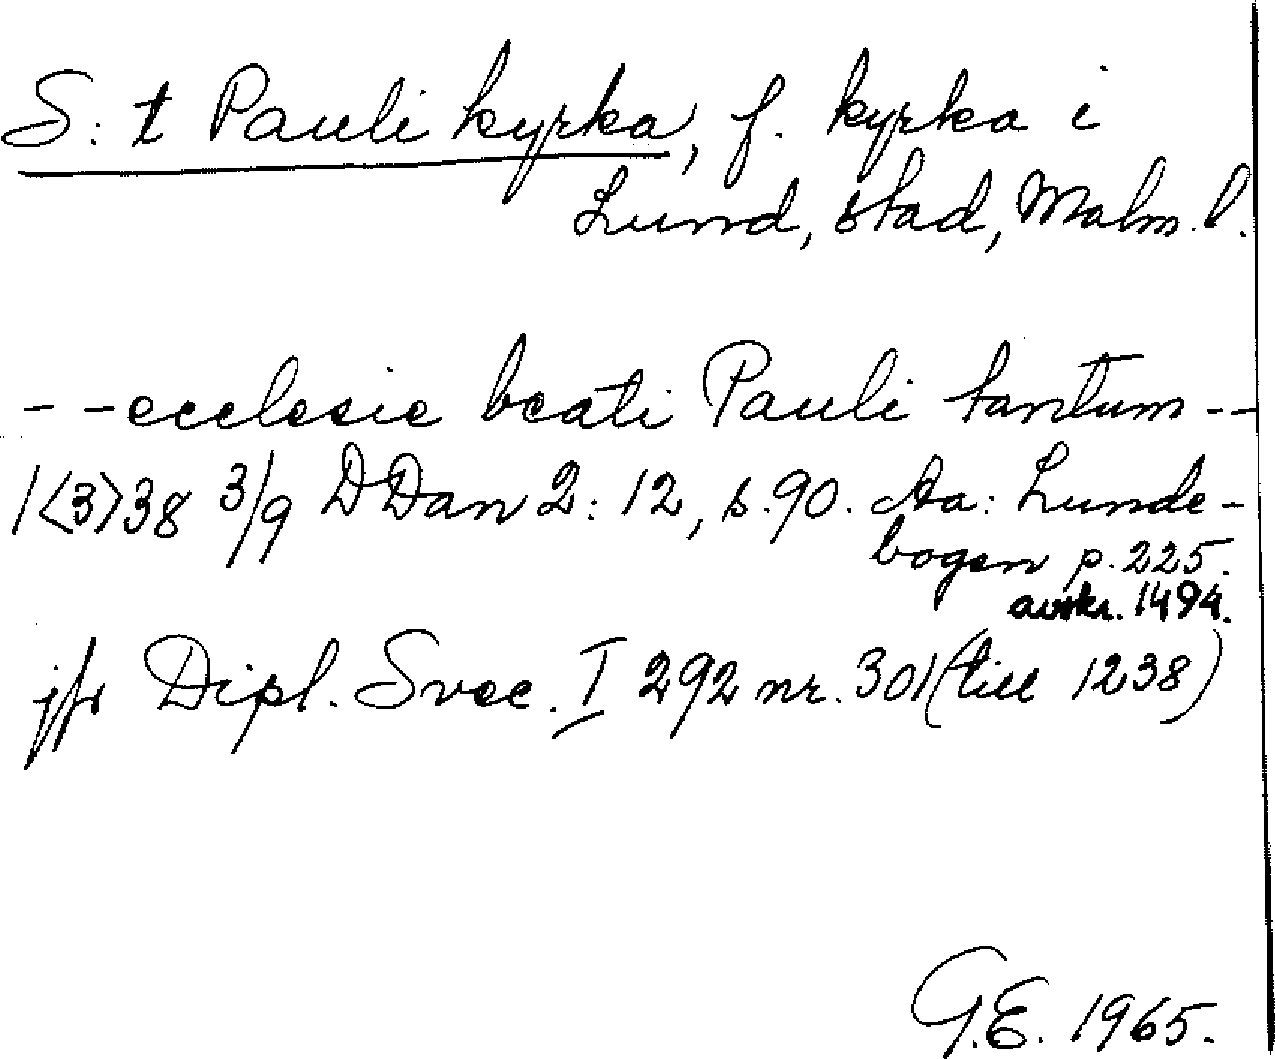 S:t Pauli kyrka, f. kyrka i
Lund, stad, Malm. l.
- - ecclesie beati Pauli tantum - -
1<3>38 3/9 DDan 2:12, s. 90. Aa: Lunde-
bogen p. 225.
avskr. 1494.
jfr Dipl. Svec. I 292 nr. 301 (till 1238)
G.E. 1965.